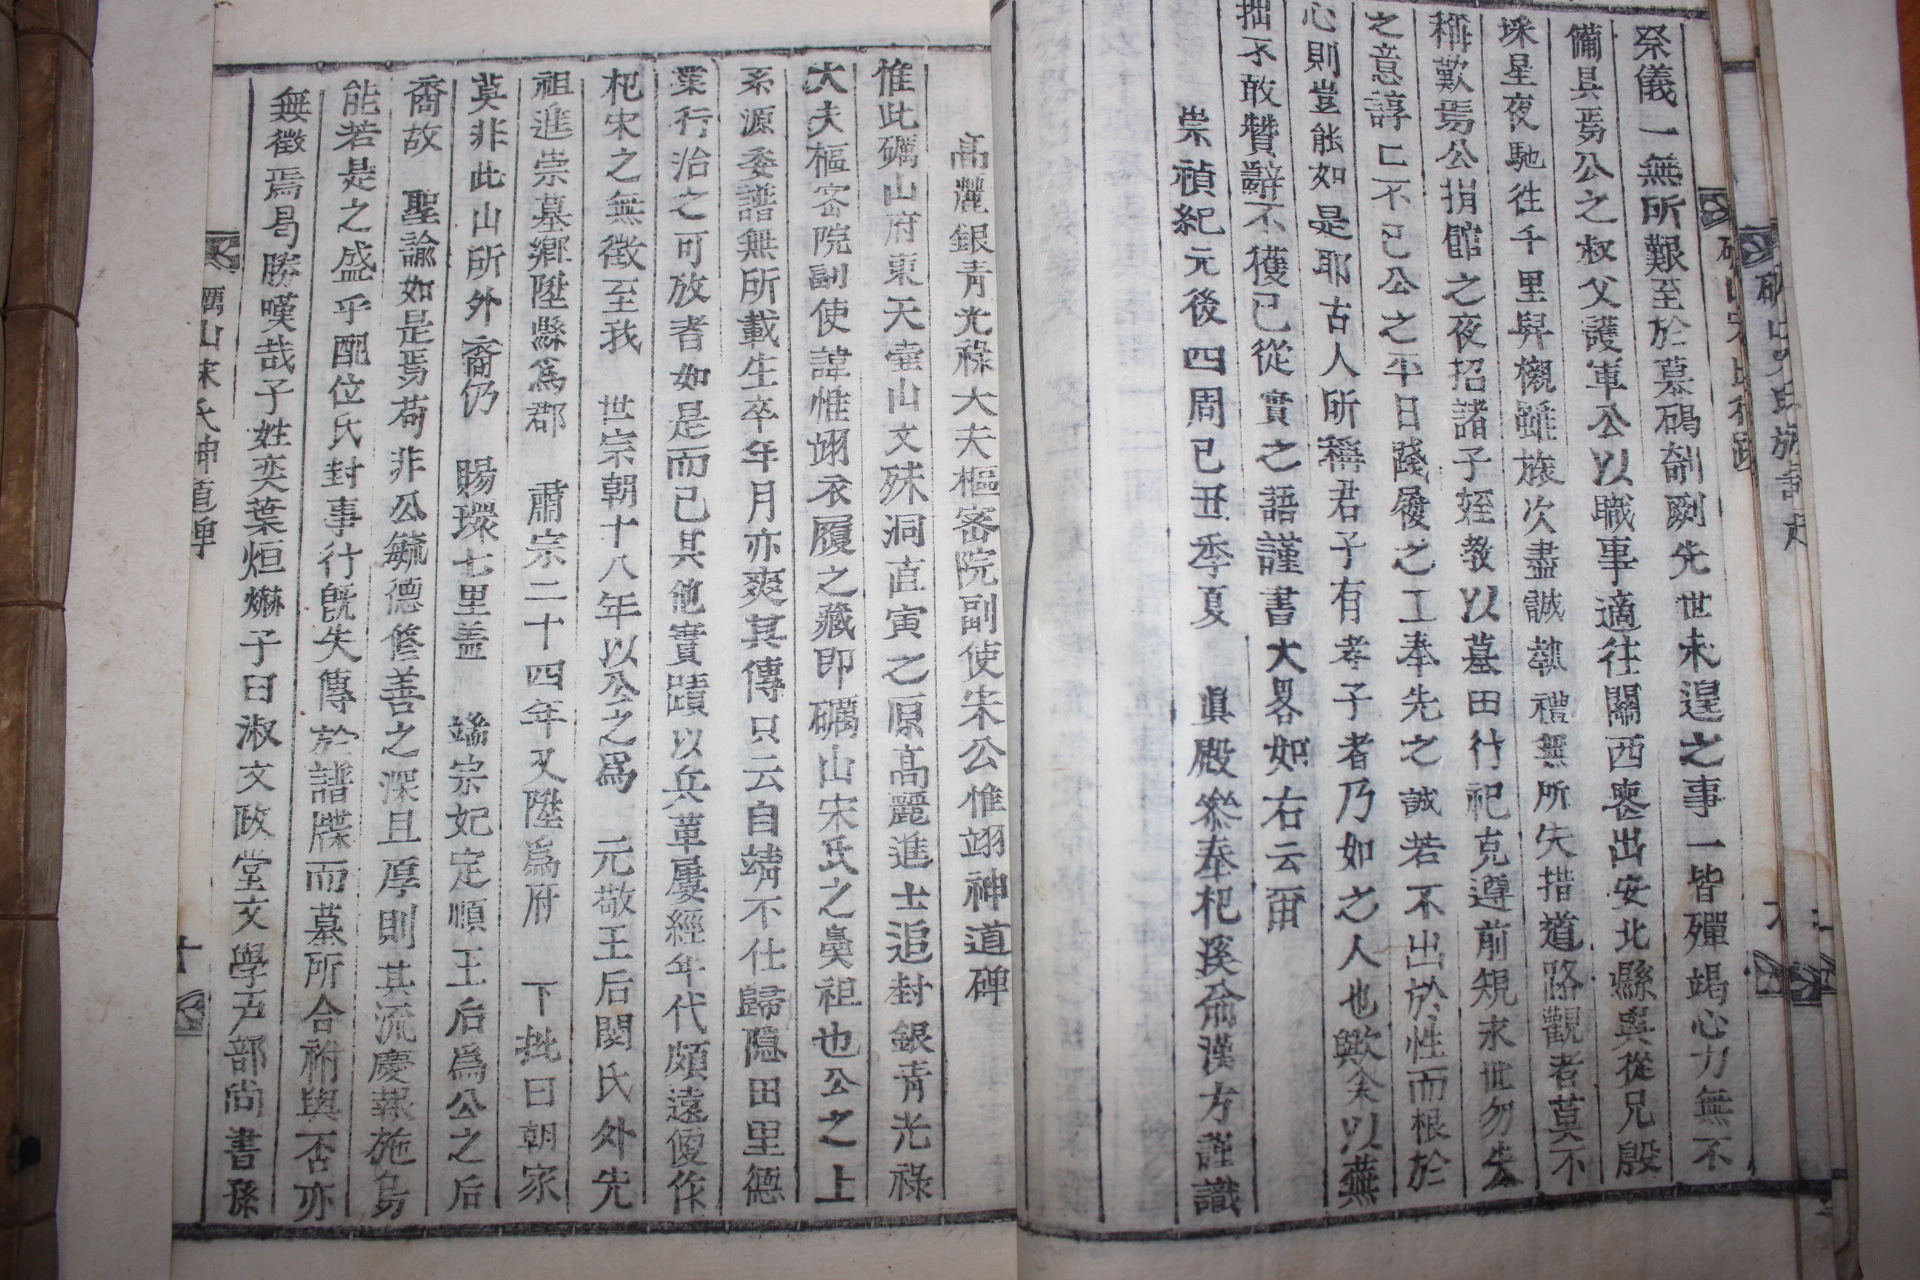 祭儀一無所艱至於墓碣剞劂先世未遑之事一皆殫竭心力無不
備具焉公之叔父護軍公以職事適往關西喪出安北縣與從兄殷
埰星夜馳往千里舁櫬雖旅次盡誠執禮無所失措道路觀者莫不
稱歎焉公捐館之夜招諸子姪教以墓田行祀克遵前規永世勿失
之意諄亡不已公之平日踐履之工奉先之誠若不出於性而根於
心則豈能如是耶古人所稱君子有孝子者乃如之人也歟余以蕪
拙不敢贊辭不獲已從實之語謹書大畧如右云爾
崇禎紀元後四周己丑季夏 眞殿叅奉杞溪俞漢方謹識
高麗銀青光祿大夫樞密院副使宋公惟翊神道碑
惟此礪山府東天壷山文殊洞直寅之原高麗進士追封銀青光祿
大夫樞密院副使諱惟翊衣履之藏即礪山宋氏之鼻祖也公之上
系源委譜無所載生卒年月亦爽其傳只云自靖不仕歸隱田里德
業行治之可放者如是而已其他實蹟以兵革屢經年代頗遠便作
杞宋之無徵至我 世宗朝十八年以公之爲 元敬王后閔氏外先
祖進崇墓鄉陞縣爲郡 肅宗二十四年又陞爲府 下批曰朝家
莫非此山所外裔仍 賜環七里盖 端宗妃定順王后爲公之后
裔故 聖諭如是焉苟非公毓德修善之深且厚則其流慶報施烏
能若是之盛乎配位氏封事行旣失傳於譜牒而墓所合祔與否亦
無徵焉曷勝嘆哉子姓奕葉烜爀子曰淑文政堂文學戶部尚書孫
礪山宋氏神道碑
十